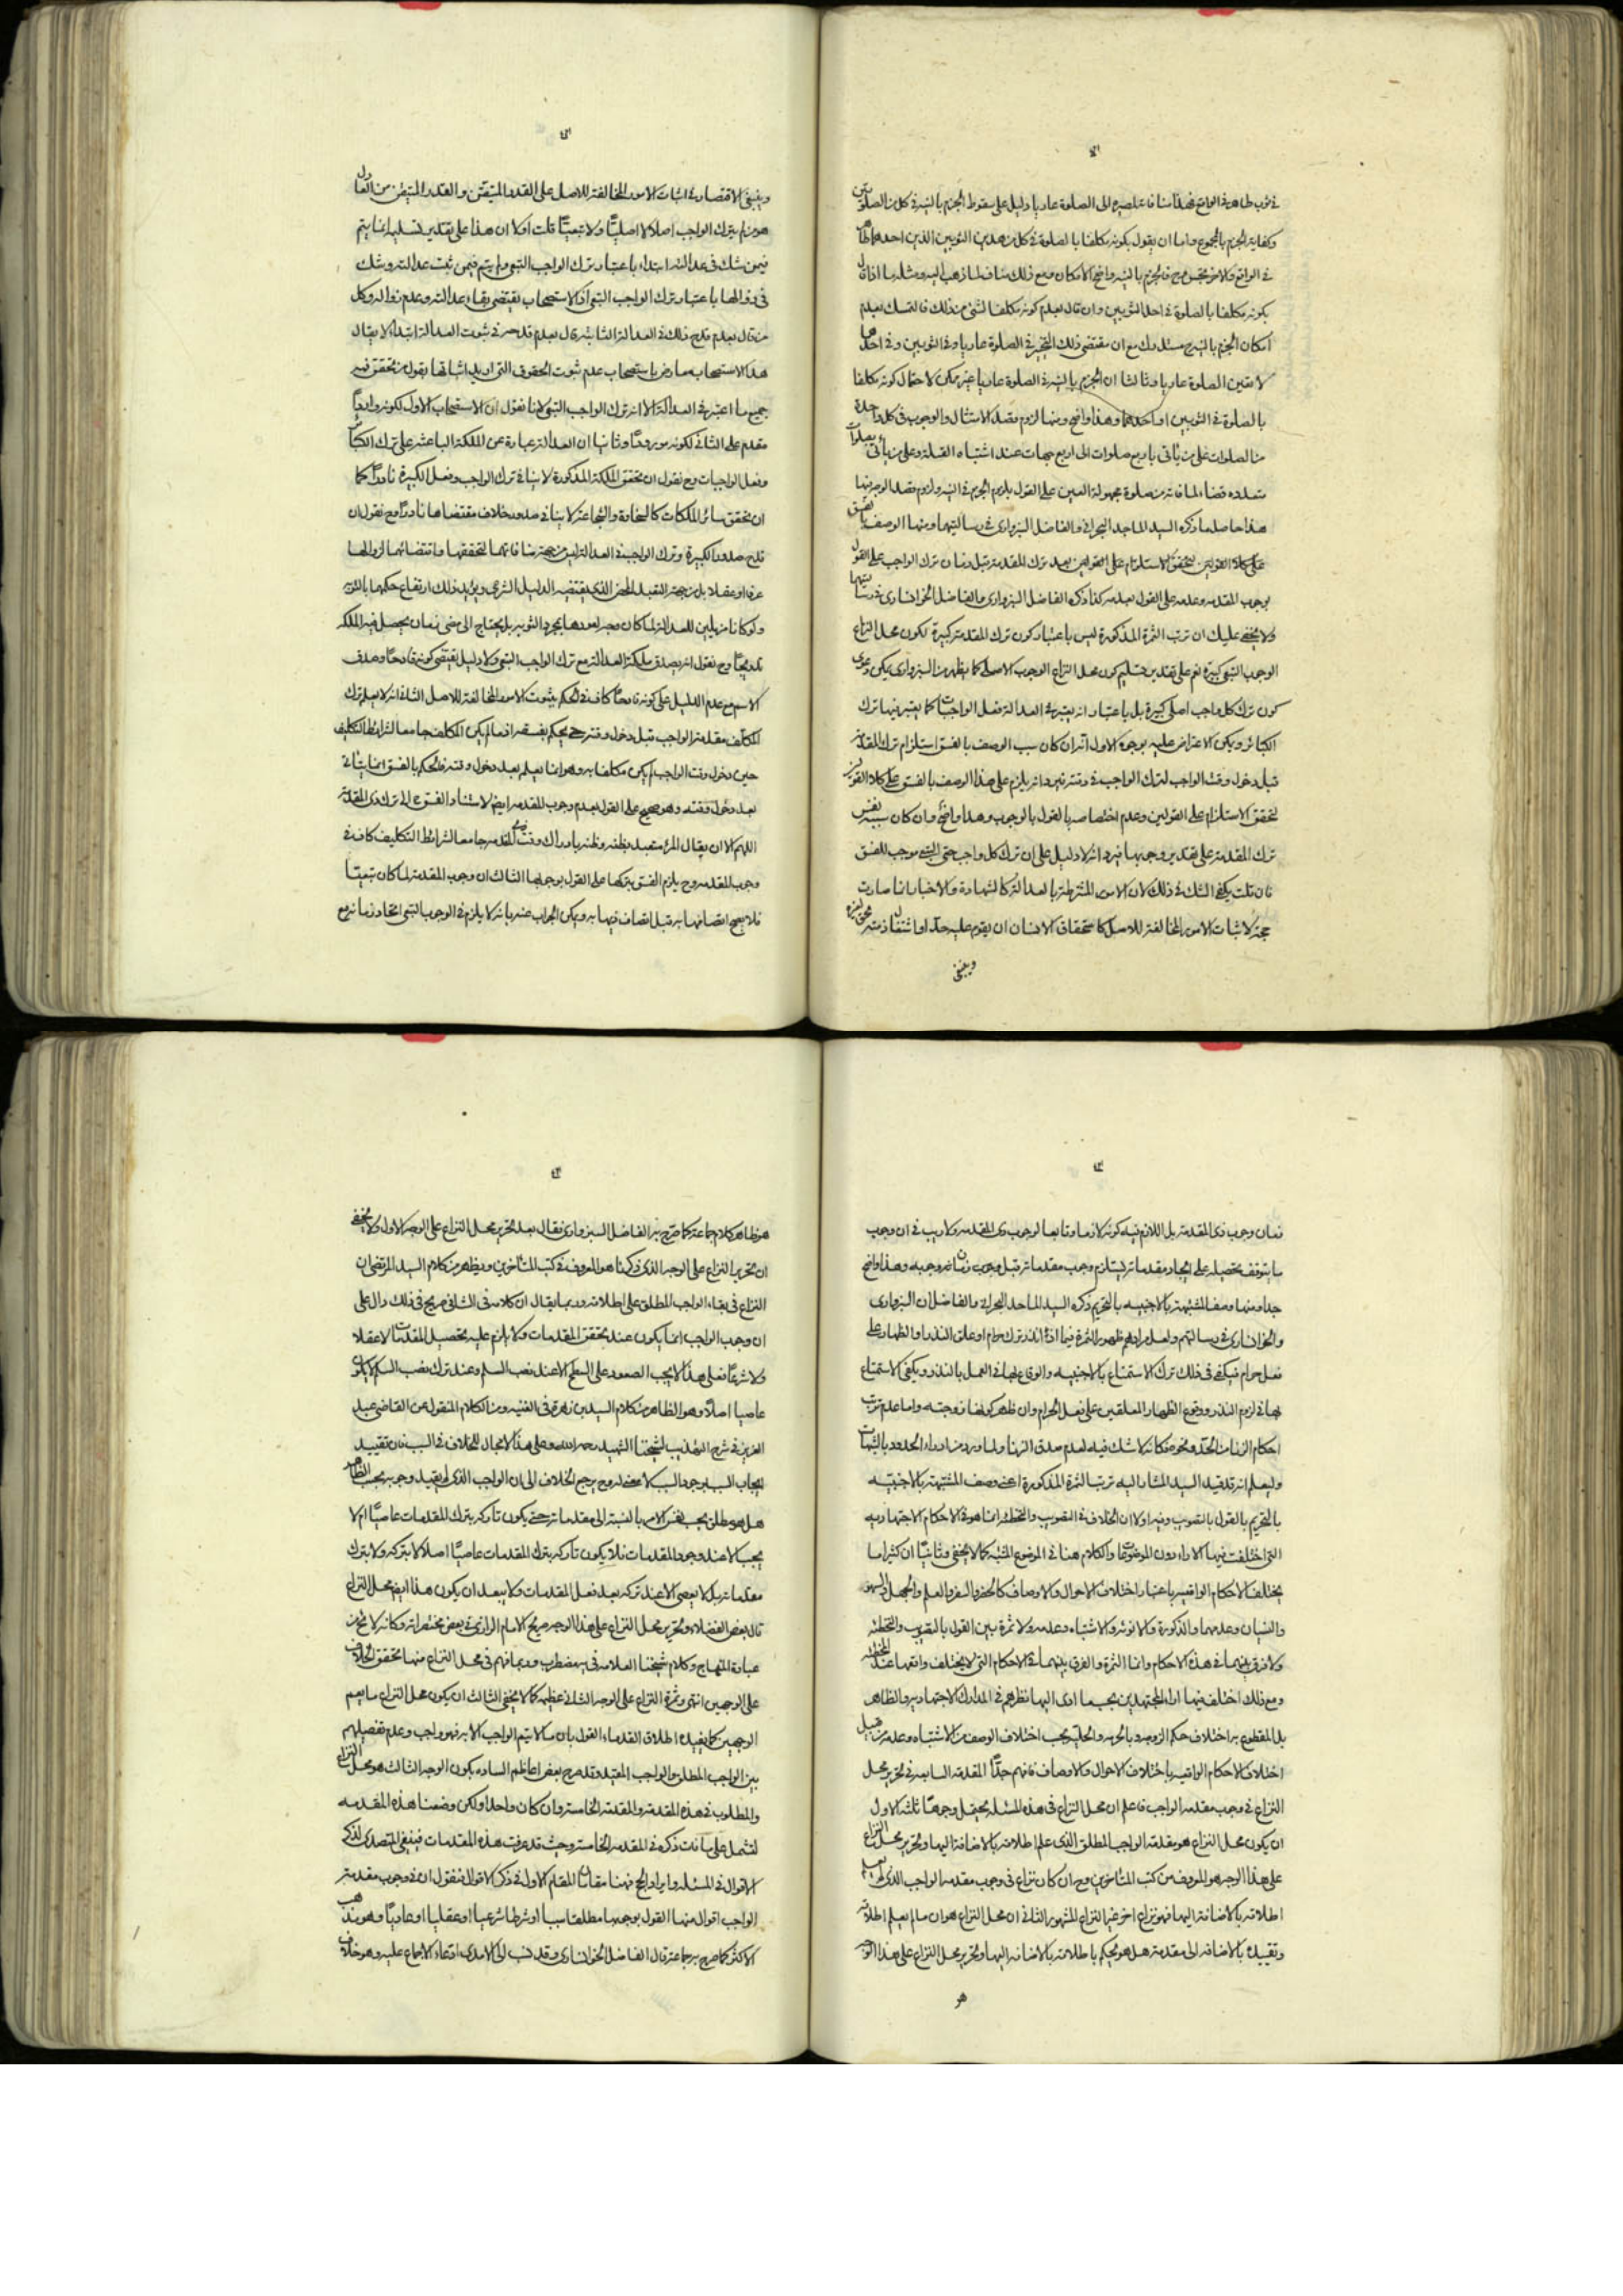 في ثوب طاهر في الواقع فهذا مناف لمصيره الى الصلوة عاريا ودليل على سقوط الجزم بالنية في كل من الصلوتين
وكفاية الجزم بالمجموع واما ان يقول بكونه مكلفا بالصلوة في كل من هذين الثوبين الذين احدهما طاهر
في الواقع ولامر مخصص مع ذلك مناف لما ذهب اليه ومثله ما اذا قال
بكونه مكلفا بالصلوة في احد الثوبين وان قال بعدم كونه مكلفا لشئ من ذلك فالتمسك بعدم
امكان الجزم بالنية مستدرك مع ان مقتضى ذلك التخيير في الصلوة عاريا وفي الثوبين وفي احدهما
لا تعين الصلوة عاريا وثالثا ان الجزم بالنية في الصلوة عاريا غير ممكن لاحتمال كونه مكلفا
بالصلوة في الثوبين او احدهما وهذا واضح ومنها لزوم قصد الامتثال والوجوب في كل واحدة
من الصلوات على من يأتي باربع صلوات الى اربع جهات عند اشتباه القبلة وعلى من يأتي بصلوات
متعددة قضاء لما فاته من صلوة مجهولة العين على القول بلزوم الجزم في النية ولزوم قصد الوجه فيها
هذا حاصل ما ذكره السيد الماجد البحراني والفاضل السبزواري في رسالتيهما ومنها الوصف بالفسق
على كلا القولين لتحقق الاستلزام على القولين بعد ترك المقدمة قبل زمان ترك الواجب على القول
بوجوب المقدمة وعدمه على القول بعدمه كذا ذكره الفاضل السبزواري والفاضل الخوانساري في رسالتيهما
ولا يخفى عليك ان ترتب الثمرة المذكورة ليس باعتبار كون ترك المقدمة كبيرة لكون محل النزاع
الوجوب التبعي كبيرة نعم على تقدير تسليم كون محل النزاع الوجوب الاصلي كما يظهر من السبزواري يمكن دعوى
كون ترك كل واجب اصلي كبيرة بل باعتبار انه يعتبر في العدالة فعل الواجبات كما يعتبر فيها ترك
الكبائر ويمكن الاعتراض عليه بوجوه الاول انه ان كان سبب الوصف بالفسق استلزام ترك المقدمة
قبل دخول وقت الواجب لترك الواجب في وقته فيرد انه يلزم على هذا الوصف بالفسق على كلا القولين
لتحقق الاستلزام على القولين وعدم اختصاصه بالقول بالوجوب وهذا واضح وان كان سببه نفس
ترك المقدمة على تقدير وجوبها فيرد انه لا دليل على ان ترك كل واجب حتى التبعي موجب للفسق
فان قلت يكفي الشك في ذلك لان الامور المشترطة بالعدالة كالشهادة والاخبار انما صارت
حجة لاثبات الامور المخالفة للاصل كاستحقاق الانسان ان يقوم عليه حد او اشتغال ذمته بحق لغيره
وينبغي
وينبغي الاقتصار في اثبات الامور المخالفة للاصل على القدر المتيقن والقدر المتيقن من العادل
هو من لم يترك الواجب اصلا لا اصليا ولا تبعيا قلت اولا ان هذا على تقدير تسليمه انما يتم
فيمن شك في عدالته ابتداء باعتبار ترك الواجب التبعي ولم يتم فيمن ثبت عدالته وشك
في زوالها باعتبار ترك الواجب التبعي اذ الاستصحاب يقتضي بقاء عدالته وعدم زواله وكل
من قال بعدم قدح ذلك في العدالة الثابتة قال بعدم قدحه في ثبوت العدالة ابتداء لا يقال
هذا الاستصحاب معارض باستصحاب عدم ثبوت الحقوق التي اريد اثباتها بقول من تحقق فيه
جميع ما اعتبر في العدالة الا انه ترك الواجب التبعي لانا نقول ان الاستصحاب الاول لكونه واردا
مقدم على الثاني لكونه مورودا وثانيا ان العدالة عبارة عن الملكة الباعثة على ترك الكبائر
وفعل الواجبات وح نقول ان تحقق الملكة المذكورة لا ينافي ترك الواجب وفعل الكبيرة نادرا كما
ان تحقق سائر الملكات كالسخاوة والشجاعة لا ينافي صدور خلاف مقتضاها نادرا وح نقول ان
قدح صدور الكبيرة وترك الواجب في العدالة ليس من جهة منافاتهما لتحققها واقتضائهما لزوالها
عرفا او عقلا بل من جهة التعبد المحض الذي يقتضيه الدليل الشرعي ويؤيد ذلك ارتفاع حكمهما بالتوبة
ولو كانا مزيلين للعدالة لما كان وجه لعودها بمجرد التوبة بل يحتاج الى مضي زمان يحصل فيه الملكة
تدريجا وح نقول انه يصدق ملكة العدالة مع ترك الواجب التبعي ولا دليل يقتضي كونه قادحا وصدق
الاسم مع عدم الدليل على كونه قادحا كاف في الحكم بثبوت الامور المخالفة للاصل الثاني انه لا يعلم ترك
المكلف مقدمة الواجب قبل دخول وقته حتى يحكم بفسقه اذ ما لم يكن المكلف جامعا لشرائط التكليف
حين دخول وقت الواجب لم يكن مكلفا به وهو انما يعلم بعد دخول وقته فالحكم بالفسق انما يتأتى
بعد دخول وقته وهو صحيح على القول بعدم وجوب المقدمة ايضا لاستناد الفسق ح الى ترك ذي المقدمة
اللهم الا ان يقال المرء متعبد بظنه وظنه بادراك وقت ذي المقدمة جامعا لشرائط التكليف كاف في
وجوب المقدمة وح يلزم الفسق بتركها على القول بوجوبها الثالث ان وجوب المقدمة لما كان تبعيا
فلا يصح اتصافها به قبل اتصاف ذيها به ويمكن الجواب عنه بانه لا يلزم في الوجوب التبعي اتحاد زمانه مع
زمان وجوب ذي المقدمة بل اللازم فيه كونه لازما وتابعا لوجوب ذي المقدمة ولا ريب في ان وجوب
ما يتوقف تحصيله على ايجاد مقدماته يستلزم وجوب مقدماته قبل وجوب زمان وجوبه وهذا واضح
جدا ومنها وصف المشتبهة بالاجنبية بالتحريم ذكره السيد الماجد البحراني والفاضلان السبزواري
والخوانساري في رسالتهم ولعل مرادهم ظهور الثمرة فيما اذا نذر ترك حرام او علق النذر او الظهار على
فعل حرام فيكفي في ذلك ترك الاستمتاع بالاجنبية والوقاع بها في العمل بالنذر ويكفي الاستمتاع
بها في لزوم النذر ووقوع الظهار المعلقين على فعل الحرام وان ظهر كونها زوجته واما عدم ترتب
احكام الزنا من الحد ونحوه فكانه لا شك فيه لعدم صدق الزنا ولما ورد من ادراء الحدود بالشبهات
وليعلم انه قد قيد السيد المشار اليه ترتب الثمرة المذكورة اعني وصف المشتبهة بالاجنبية
بالتحريم بالقول بالتصويب وفيه اولا ان الخلاف في التصويب والتخطئة انما هو في الاحكام الاجتهادية
التي اختلفت فيها الاراء دون الموضوعات والكلام هنا في الموضوع المشتبه كما لا يخفى وثانيا ان كثيرا ما
يختلف الاحكام الواقعية باعتبار اختلاف الاحوال والاوصاف كالحضر والسفر والعلم والجهل والسهو
والنسيان وعدمهما والذكورة والانوثة والاشتباه وعدمه ولا ثمرة بين القول بالتصويب والتخطئة
ولا فرق بينهما في هذه الاحكام وانما الثمرة والفرق بينهما في الاحكام التي لا يختلف واقعها عند المخطئة
ومع ذلك اختلف فيها اراء المجتهدين بحسب ما ادى اليها نظرهم في المدارك الاجتهادية والظاهر
بل المقطوع به اختلاف حكم الزوجة بالحرمة والحلية بحسب اختلاف الوصف من الاشتباه وعدمه من قبيل
اختلاف الاحكام الواقعية باختلاف الاحوال والاوصاف فافهم جدا المقدمة السابعة في تحرير محل
النزاع في وجوب مقدمة الواجب فاعلم ان محل النزاع في هذه المسئلة يحتمل وجوها ثلثة الاول
ان يكون محل النزاع هو مقدمة الواجب المطلق الذي علم اطلاقه بالاضافة اليها وتحرير محل النزاع
على هذا الوجه هو المعروف من كتب المتاخرين وح ان كان نزاع في وجوب مقدمة الواجب الذي لم يعلم
اطلاقه بالاضافة اليها فهو نزاع اخر غير النزاع المشهور الثاني ان محل النزاع هو ان ما لم يعلم اطلاقه
وتقييده بالاضافة الى مقدمة هل هو يحكم باطلاقه بالاضافة اليها وتحرير محل النزاع على هذا الوجه
هو
هو ظاهر كلام جماعة كما صرح به الفاضل السبزواري فقال بعد تحرير محل النزاع على الوجه الاول ولا يخفى
ان تحرير النزاع على الوجه الذي ذكرنا هو المعروف في كتب المتاخرين ويظهر من كلام السيد المرتضى ان
النزاع في بقاء الواجب المطلق على اطلاقه وربما يقال ان كلامه في الشافي صريح في ذلك دال على
ان وجوب الواجب انما يكون عند تحقق المقدمات ولا يلزم عليه تحصيل المقدمات لا عقلا
ولا شرعا فعلى هذا لا يجب الصعود على السطح الا عند نصب السلم وعند ترك نصب السلم لا يكون
عاصيا اصلا وهو الظاهر من كلام السيد بن زهرة في الغنية ومن الكلام المنقول عن القاضي عبد
العزيز في شرح التهذيب لشيخنا الشهيد رحمه الله وعلى هذا لا مجال للخلاف في السبب فان تقييد
ايجاب المسبب بوجود السبب لا معنى له وح يرجع الخلاف الى ان الواجب الذي لم يقيد وجوبه بحسب الظاهر
هل هو مطلق بحسب نفس الامر بالنسبة الى مقدماته حتى يكون تاركه بترك المقدمات عاصيا ام لا
يجب الا عند وجود المقدمات فلا يكون تاركه بترك المقدمات عاصيا اصلا لا بتركه ولا بترك
مقدماته بل لا يعصي الا عند تركه بعد فعل المقدمات ولا يبعد ان يكون هذا ايضا محل النزاع
قال بعض الفضلاء وتحرير محل النزاع على هذا الوجه صريح الامام الرازي في بعض مختصراته وكانه لا يخلو من
عبارة المنهاج وكلام شيخنا العلامة فيه مضطرب وربما فهم في محل النزاع منها تحقق الخلاف
على الوجهين انتهى وثمرة النزاع على الوجه الثاني عظيمة كما لا يخفى الثالث ان يكون محل النزاع ما يعم
الوجهين كما يفيده اطلاق القدماء القول بان ما لا يتم الواجب الا به فهو واجب وعدم تفصيلهم
بين الواجب المطلق والواجب المقيد وقد صرح بعض اعاظم السادة بكون الوجه الثالث هو محل النزاع
والمطلوب في هذه المقدمة والمقدمة الخامسة وان كان واحدا ولكن وضعنا هذه المقدمة
لتشتمل على ما فات ذكره في المقدمة الخامسة وحيث قد عرفت هذه المقدمات فينبغي التصدي لذكر
الاقوال في المسئلة وايراد الحجج فهنا مقامات المقام الاول في ذكر الاقوال فنقول ان في وجوب مقدمة
الواجب اقوال منها القول بوجوبها مطلقا سببا او شرطا شرعيا او عقليا او عاديا وهو مذهب
الاكثر كما صرح به جماعة قال الفاضل الخوانساري وقد نسب الى الامدي ادعاء الاجماع عليه وهو خلاف